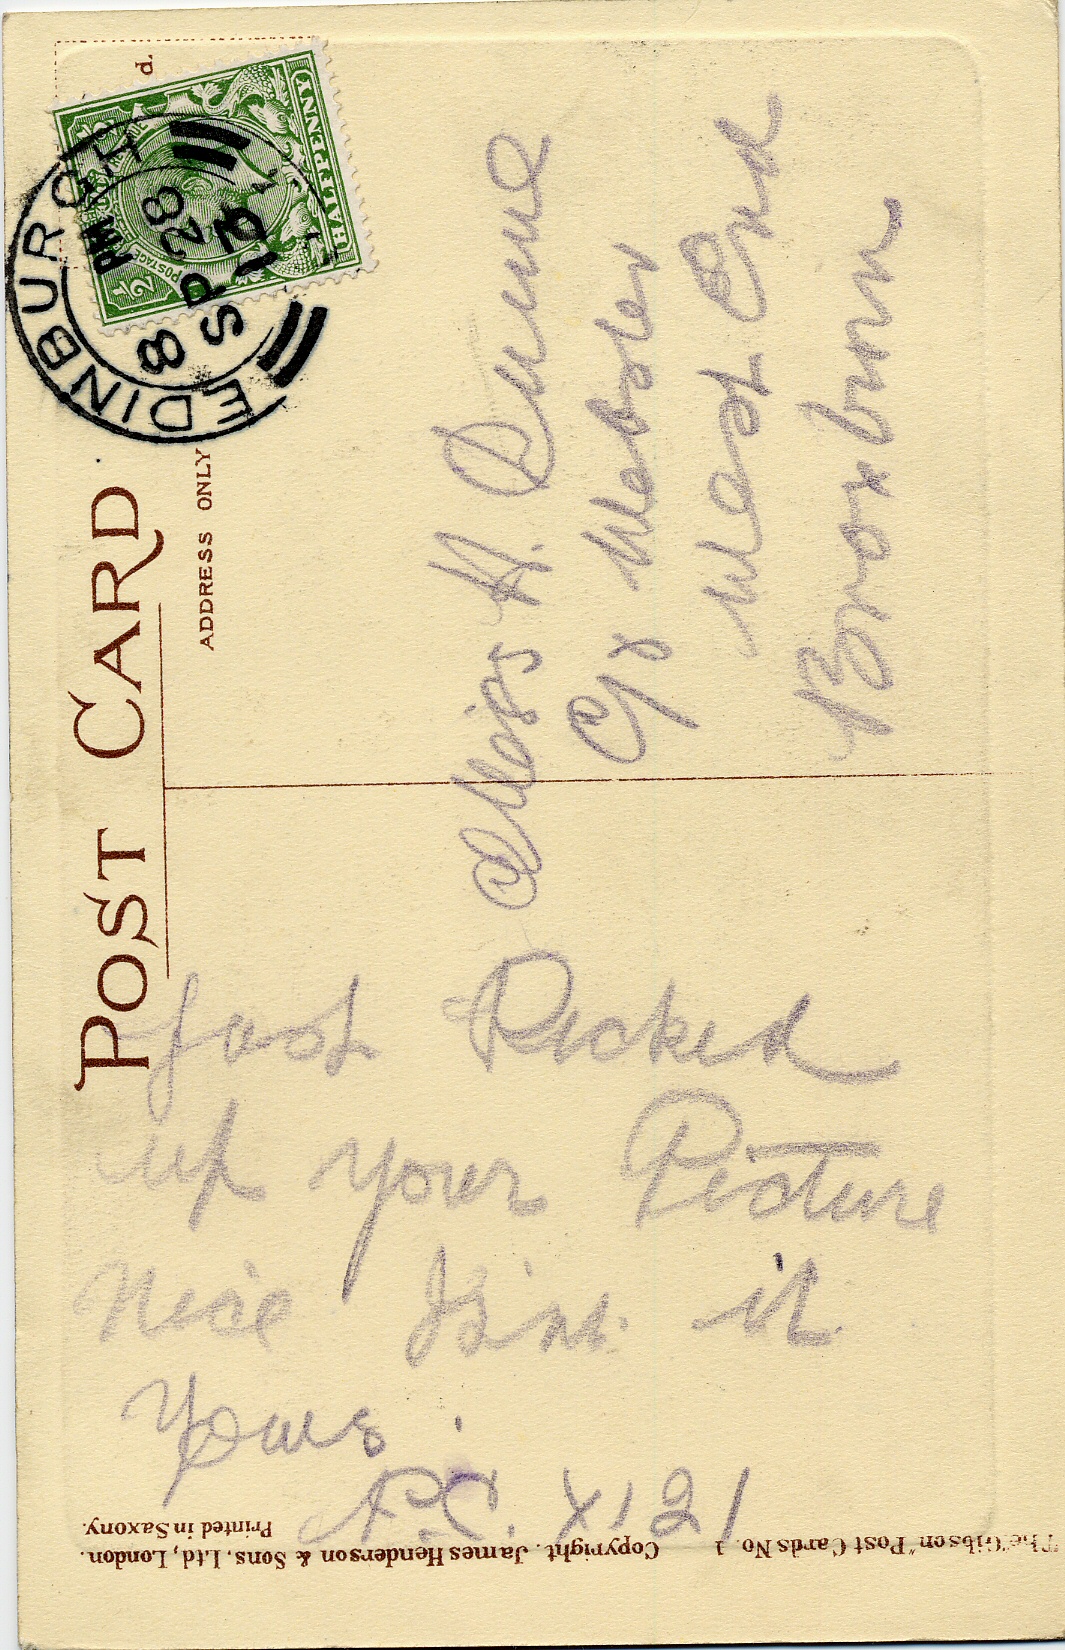 POST CARD
ADDRESS ONLY
d.
HALFPENNY
POSTAGE
½
EDINBURGH
8 PM
SP 28
13
Just Picked
up your Picture
Nice it
Yours.
P.C. X121
Miss H.
Webster
West End
Broxburn
The "Gibson" Post Cards No. 1 Copyright. James Henderson & Sons, Ltd, London.
Printed in Saxony.